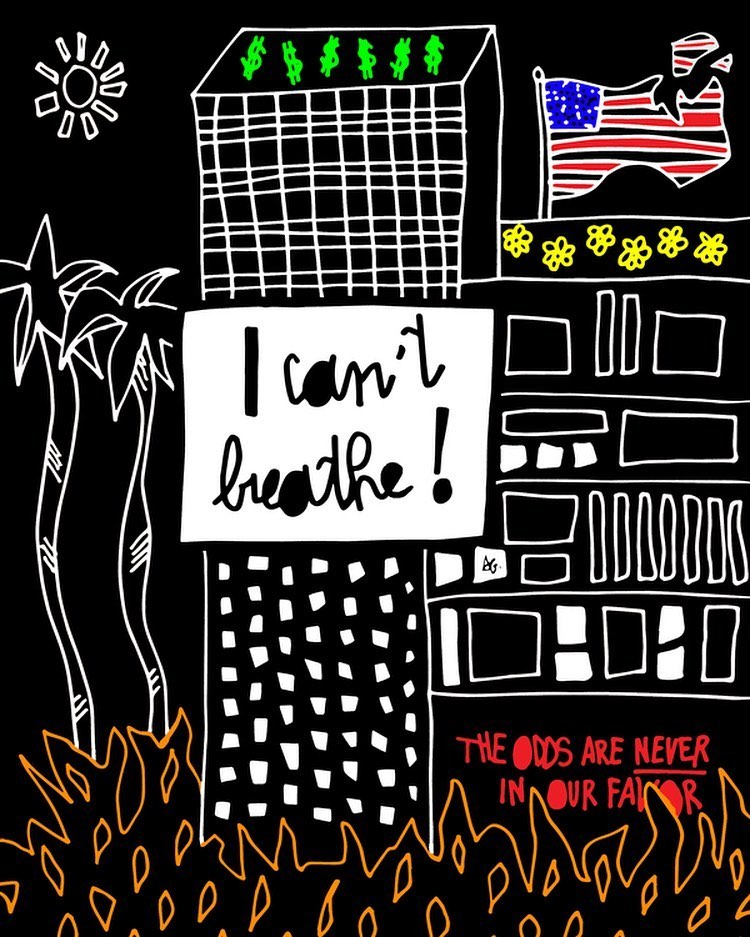 $ $ $ $ $ $
I can't
breathe!
AG.
THE ODDS ARE NEVER
IN OUR FAVOR